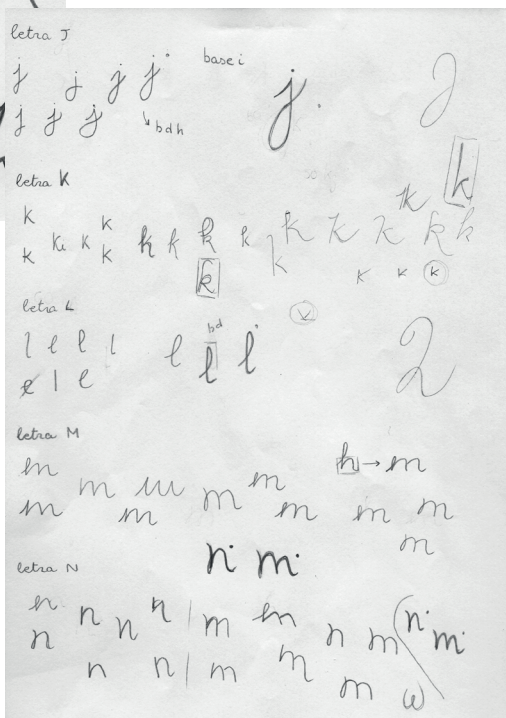 letra J
j j j j base i
j j j bdh j 2
letra K
k k k k k k k k k k k k k k k k k
k k k k k k k k
letra L
l e l l l bd l l 2
e l e
letra M
m m m m m m h → m
m m m m m
m
n m
letra N
n n n n m m n m n m
n n n n m m m w